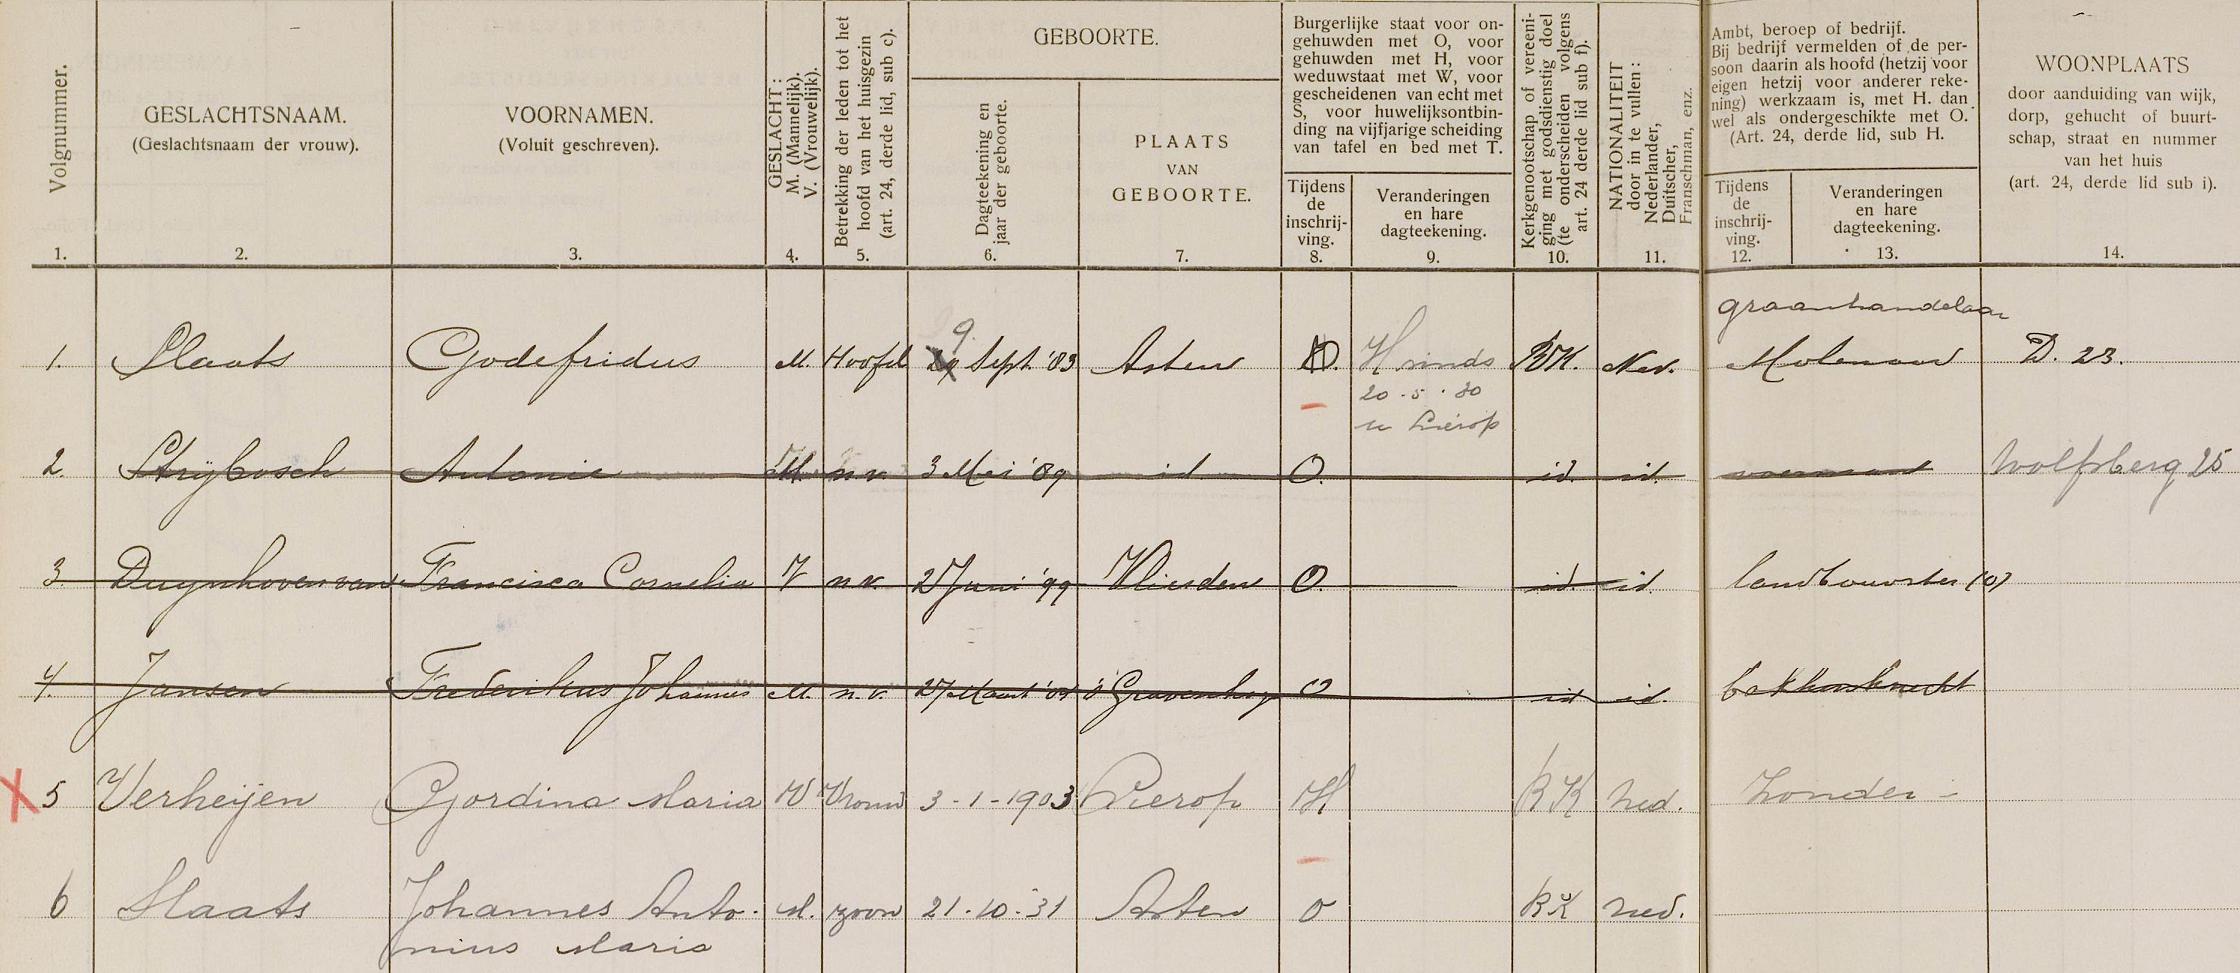 Volgnummer.
1.
GESLACHTSNAAM.
(Geslachtsnaam der vrouw).
2.
VOORNAMEN.
(Voluit geschreven).
3.
GESLACHT:
M. (Mannelijk).
V. (Vrouwelijk).
4.
Betrekking der leden tot het
hoofd van het huisgezin
(art. 24, derde lid, sub c).
5.
GEBOORTE.
Dagteekening en
jaar der geboorte.
6.
PLAATS
VAN
GEBOORTE.
7.
Burgerlijke staat voor on-
gehuwden met O, voor
gehuwden met H, voor
weduwstaat met W, voor
gescheidenen van echt met
S, voor huwelijksontbin-
ding na vijfjarige scheiding
van tafel en bed met T.
Tijdens
de
inschrij-
ving.
8.
Veranderingen
en hare
dagteekening.
9.
Kerkgenootschap of vereeni-
ging met godsdienstig doel
(te onderscheiden volgens
art. 24 derde lid sub f).
10.
NATIONALITEIT
door in te vullen:
Nederlander,
Duitscher,
Franschman, enz.
11.
Ambt, beroep of bedrijf.
Bij bedrijf vermelden of de per-
soon daarin als hoofd (hetzij voor
eigen hetzij voor anderer reke-
ning) werkzaam is, met H. dan
wel als ondergeschikte met O.
(Art. 24, derde lid, sub H.
Tijdens
de
inschrij-
ving.
12.
Veranderingen
en hare
dagteekening.
13.
WOONPLAATS
door aanduiding van wijk,
dorp, gehucht of buurt-
schap, straat en nummer
van het huis
(art. 24, derde lid sub i).
14.
graanhandelaar
9
1. Slaats Godefridus M. Hoofd Sept. '83 Asten O. H sinds R.K. Ned. Molenaar D. 23.
20-5-30
te Lierop
2. Strijbosch Antonie M. n.v. 3 Mei '89 id. O. id. id. voerman Wolfsberg 25
3. Duynhoven van Francisca Cornelia V n.v. 2 Juni '99 Vlierden O. id. id. landbouwster (O)
4. Jansen Frederikus Johannes M. n.v. 27 Maart 's Gravenhage O id id. bakkersknecht
5 Verheijen Gordina Maria V Vrouw 3-1-1903 Lierop H RK Ned. Zonder -
6 Slaats Johannes Anto- M. zoon 21-10-31 Asten O RK Ned.
nius Maria